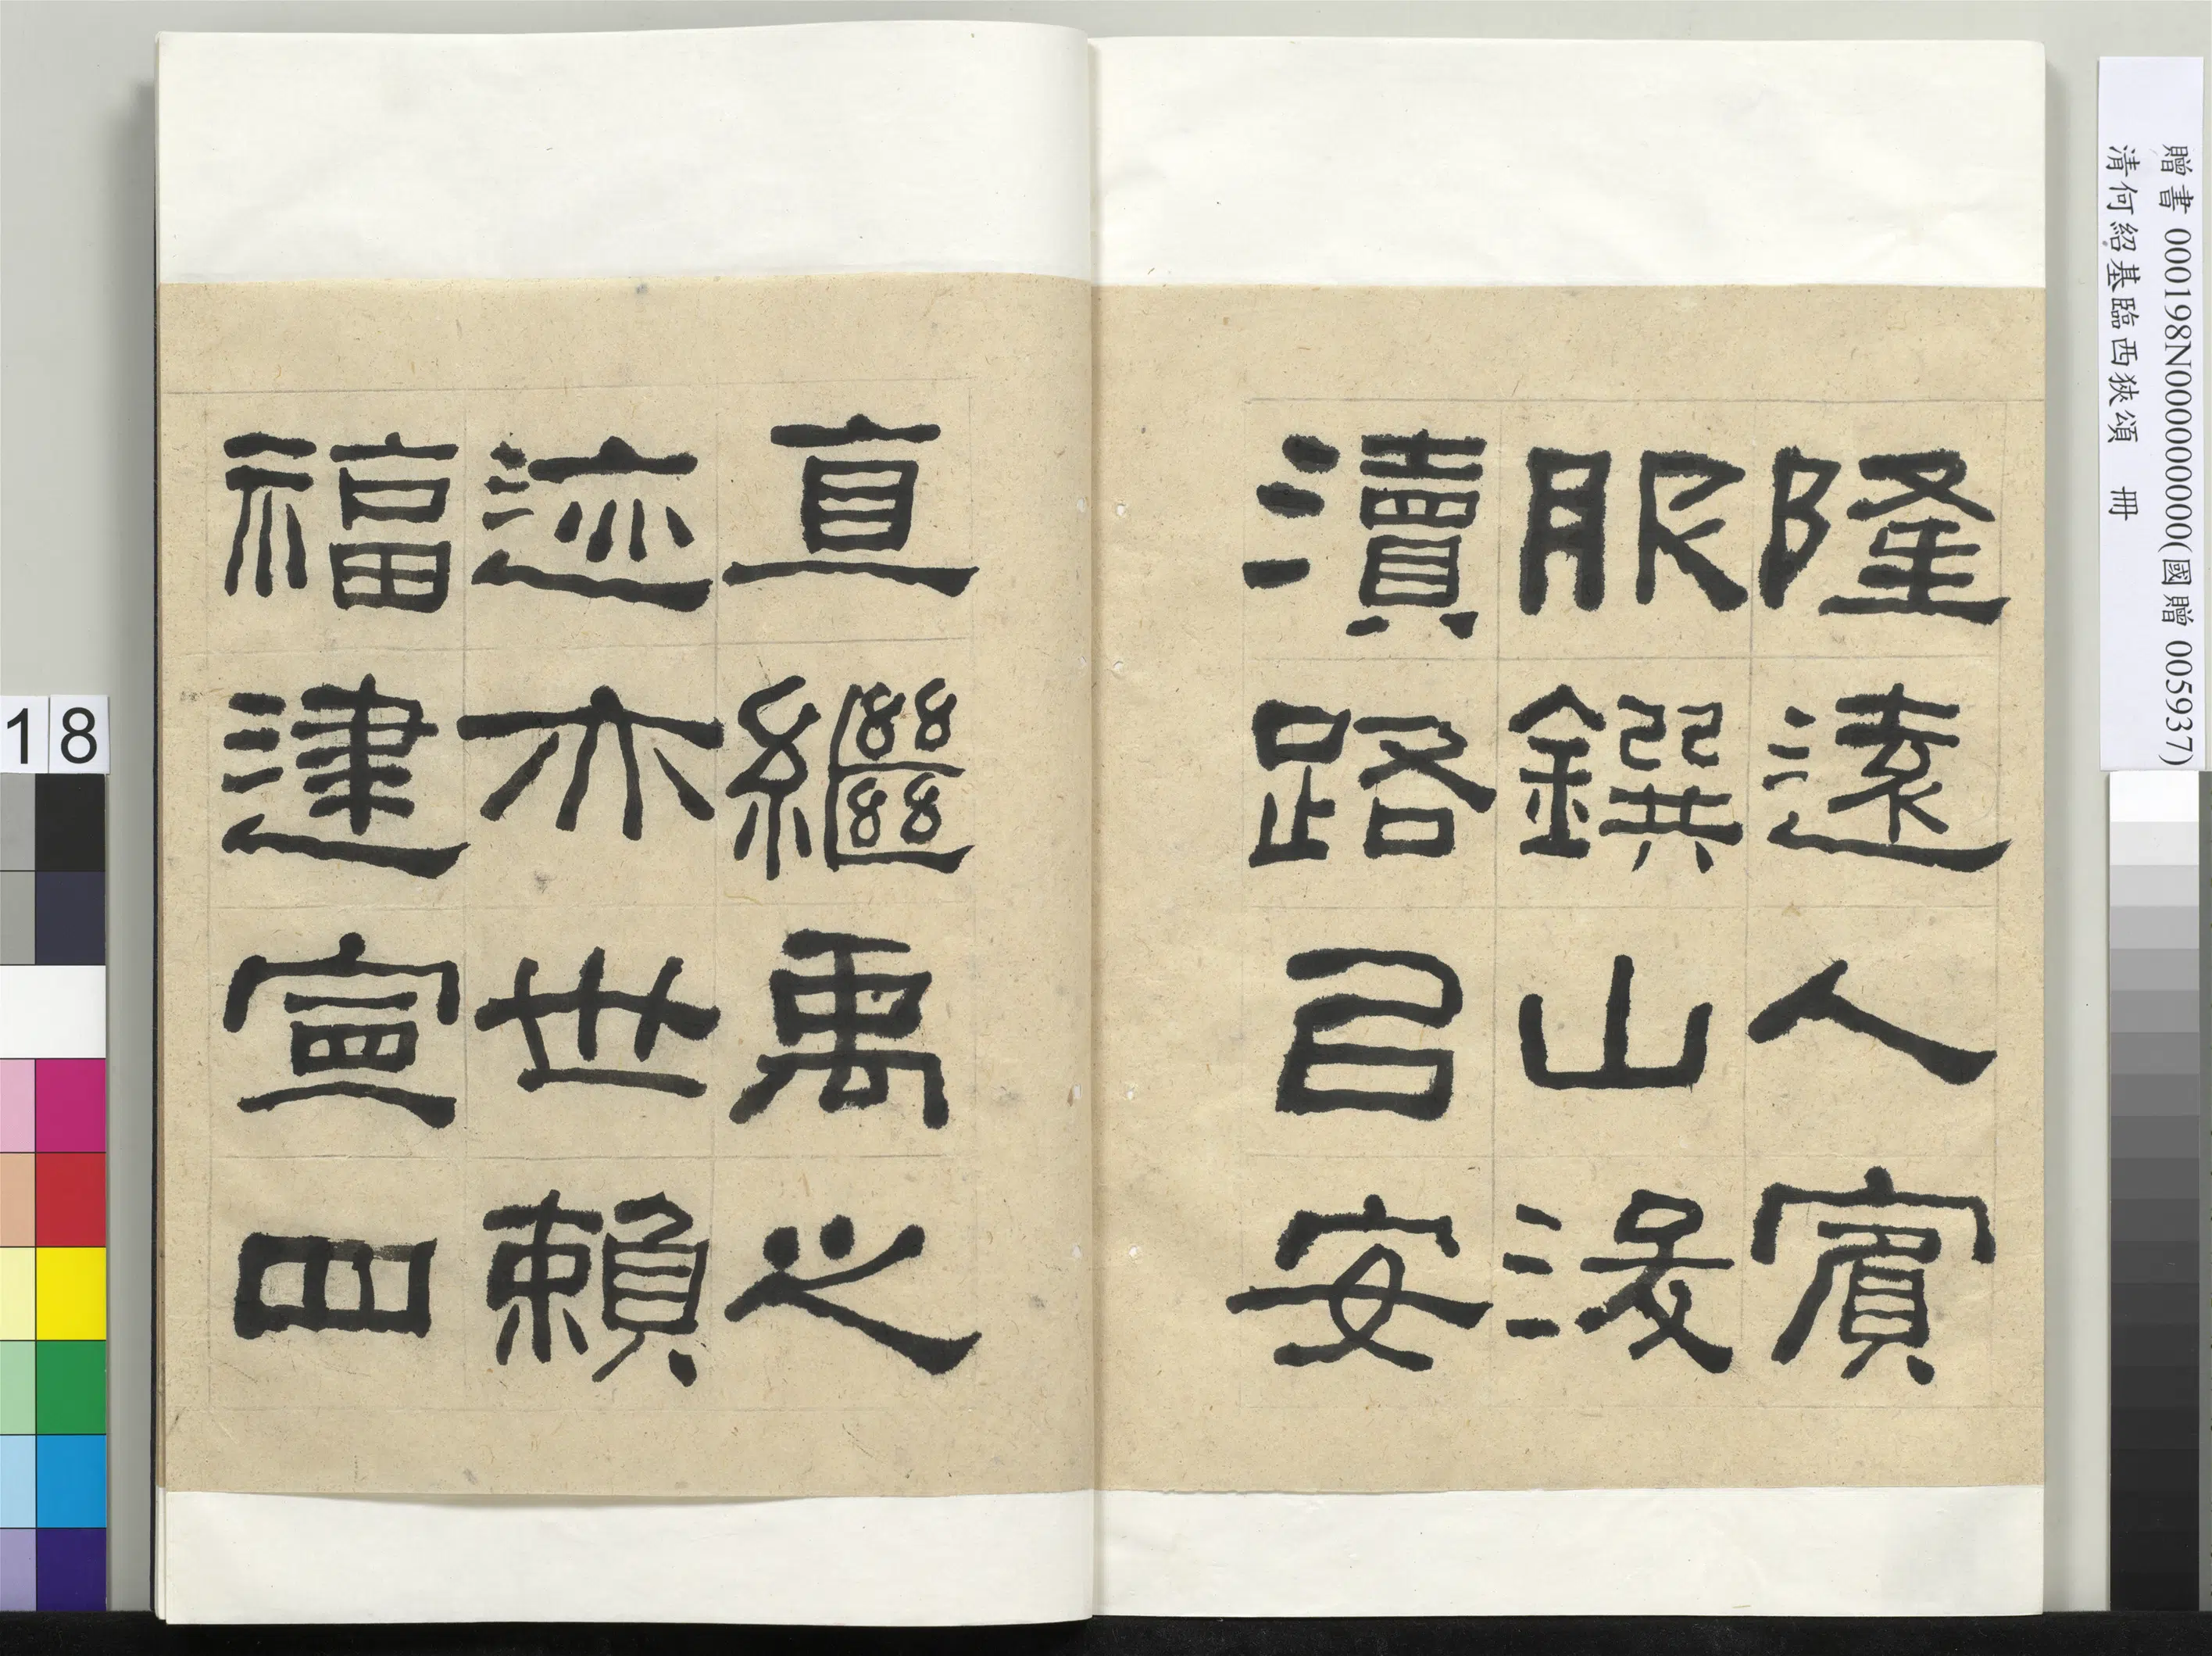 隆遠人賓
服鐉山浚
瀆路㠯安
直繼禹之
迹亦世賴
福建寧四
贈書 000198N000000000(國贈 005937)
清何紹基臨西狹頌 冊
18